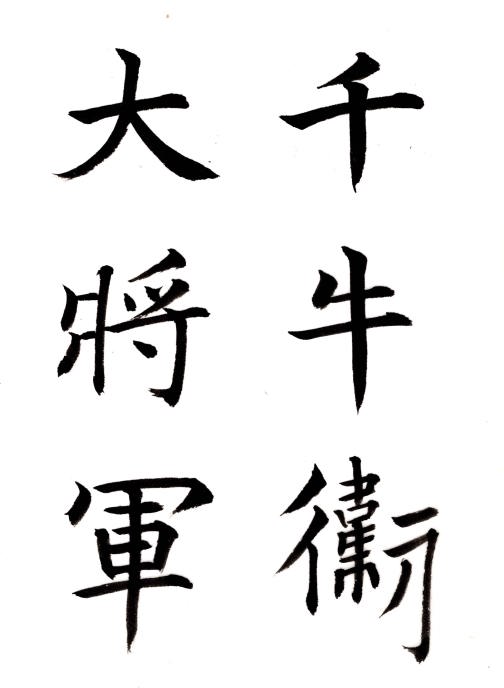 千牛衞
大將軍